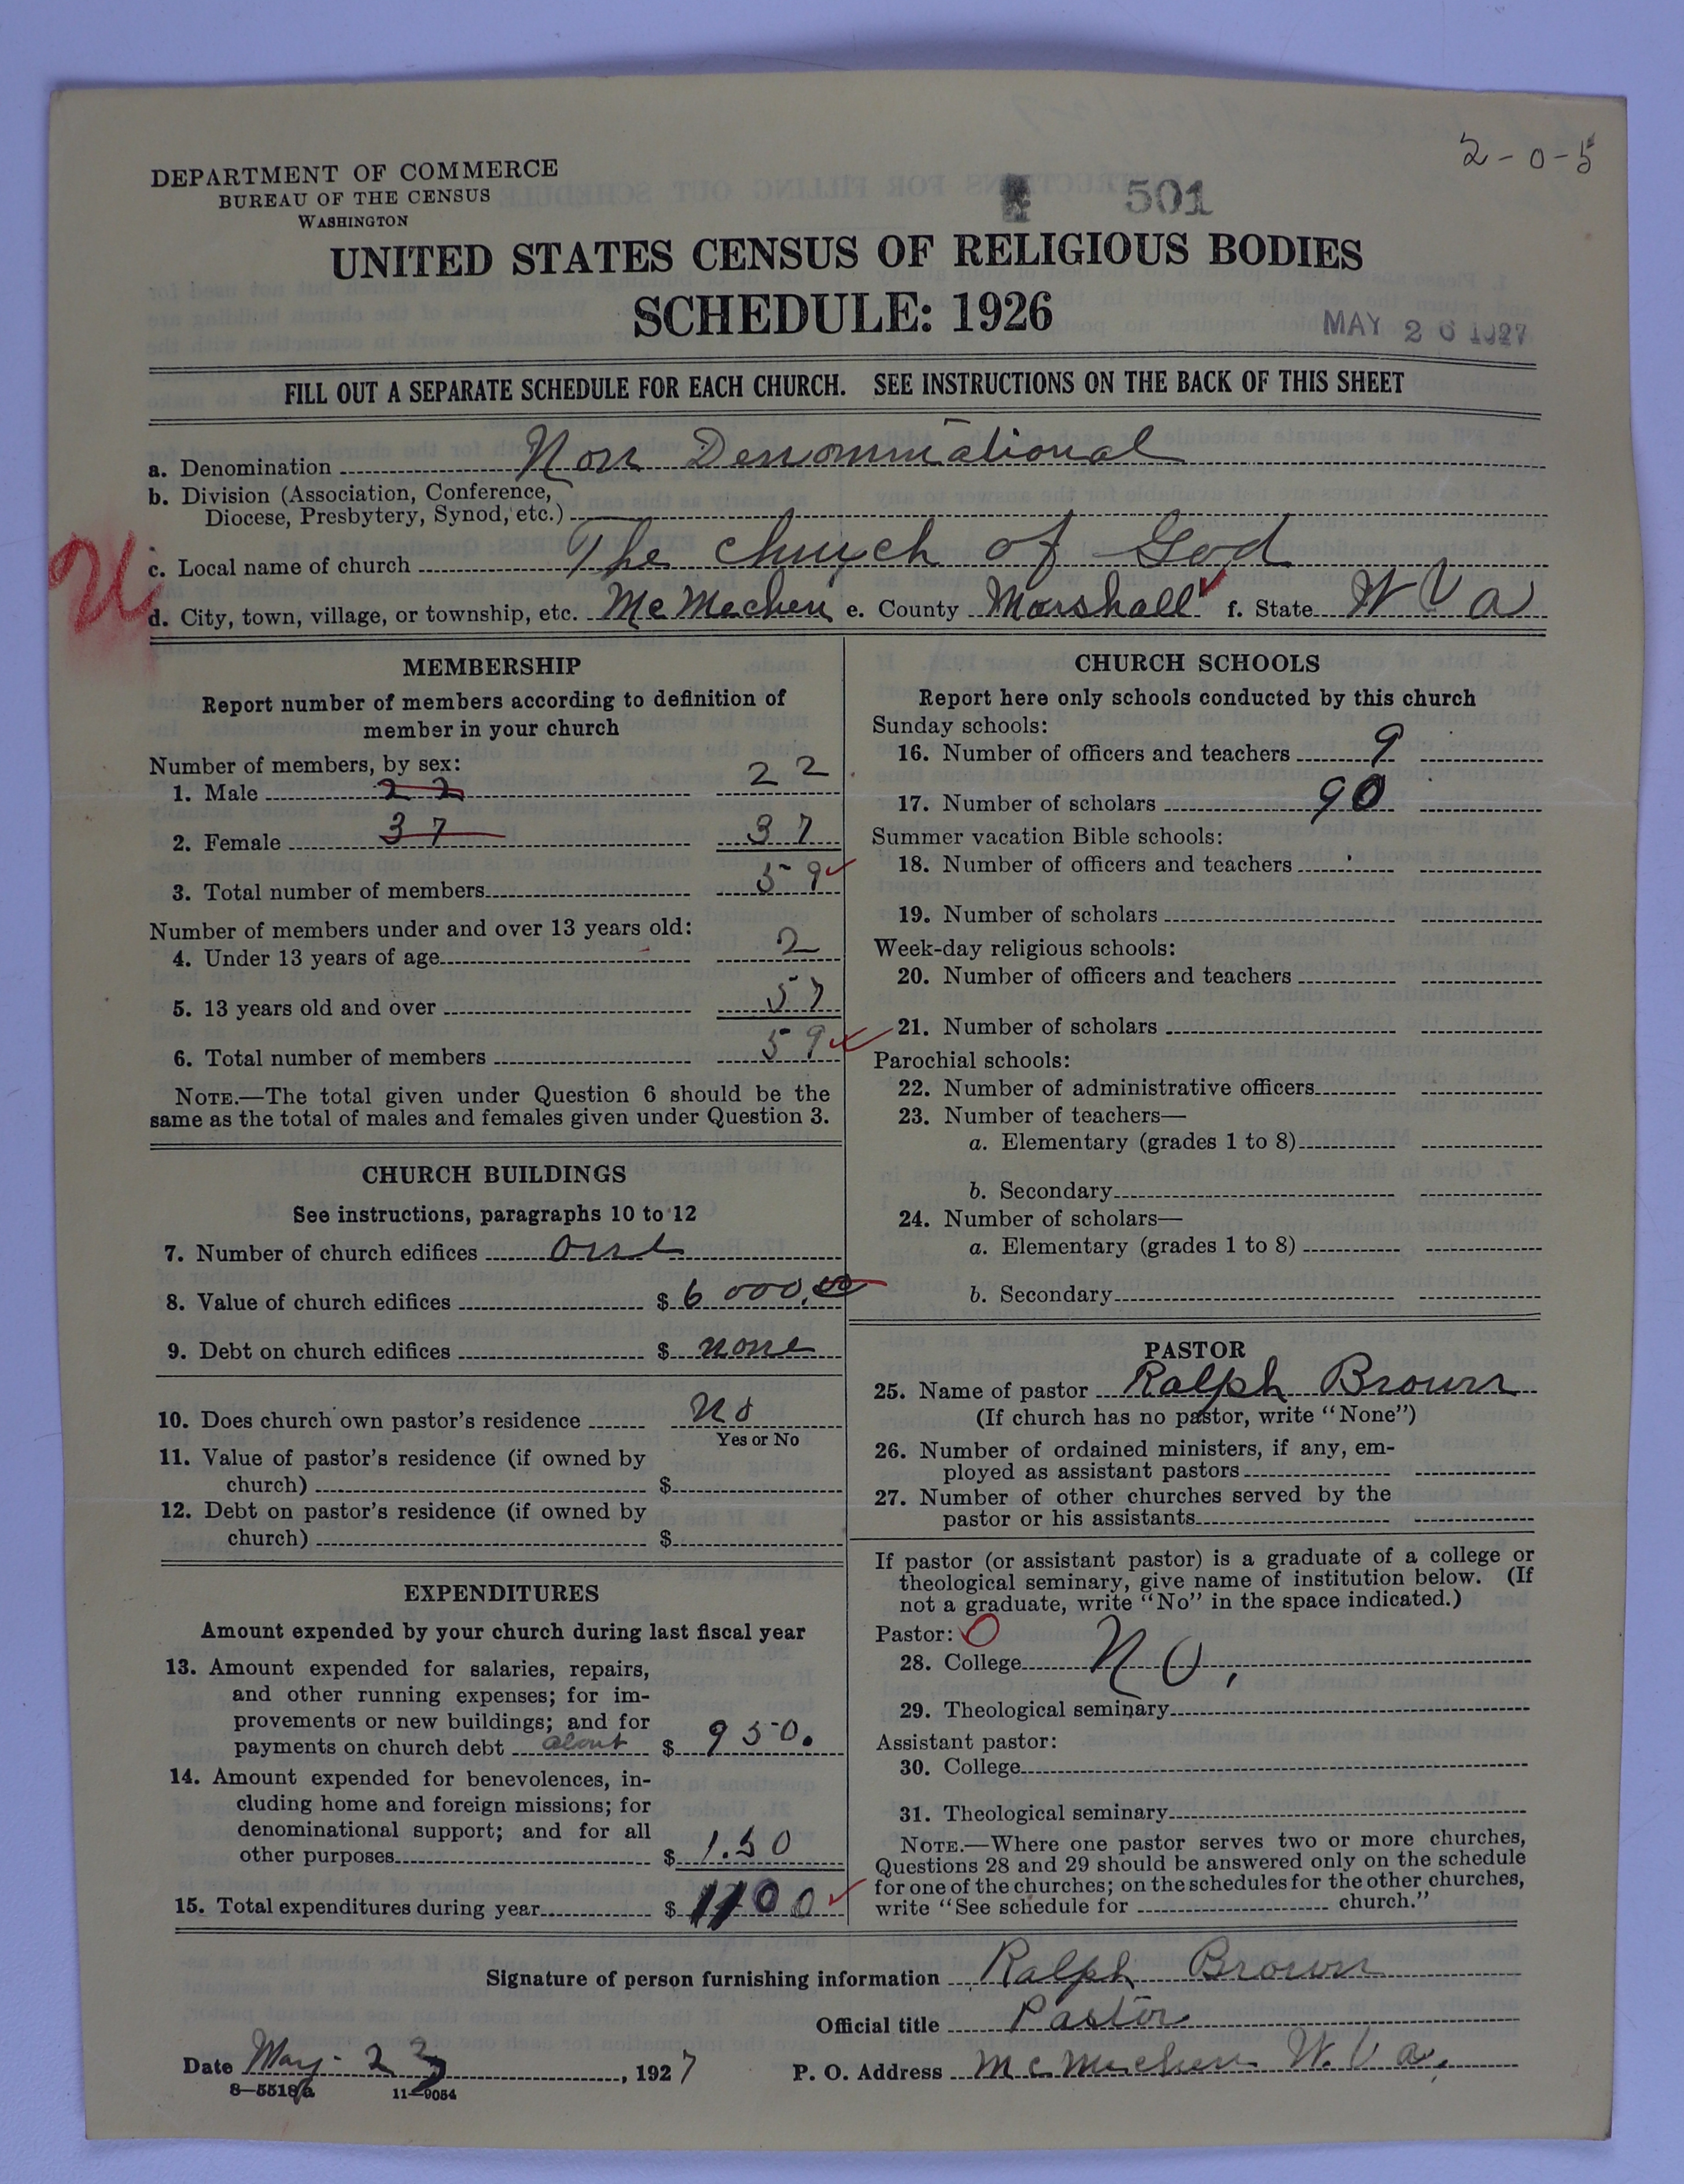 2-0-5
DEPARTMENT OF COMMERCE
BUREAU OF THE CENSUS
WASHINGTON
501
UNITED STATES CENSUS OF RELIGIOUS BODIES
SCHEDULE: 1926
MAY 26 1927
FILL OUT A SEPARATE SCHEDULE FOR EACH CHURCH. SEE INSTRUCTIONS ON THE BACK OF THIS SHEET
a. Denomination Non Denominational
b. Division (Association, Conference,
Diocese, Presbytery, Synod, etc.)
c. Local name of church The church of God
d. City, town, village, or township, etc. McMechen e. County Marshall f. State W Va
MEMBERSHIP
Report number of members according to definition of
member in your church
Number of members, by sex:
1. Male 22 22
2. Female 37 37
3. Total number of members 59
Number of members under and over 13 years old:
4. Under 13 years of age 2
5. 13 years old and over 57
6. Total number of members 59
NOTE.—The total given under Question 6 should be the
same as the total of males and females given under Question 3.
CHURCH BUILDINGS
See instructions, paragraphs 10 to 12
7. Number of church edifices one
8. Value of church edifices $ 6000.00
9. Debt on church edifices $ none
10. Does church own pastor's residence No
Yes or No
11. Value of pastor's residence (if owned by
church) $
12. Debt on pastor's residence (if owned by
church) $
EXPENDITURES
Amount expended by your church during last fiscal year
13. Amount expended for salaries, repairs,
and other running expenses; for im-
provements or new buildings; and for
payments on church debt about $ 950.
14. Amount expended for benevolences, in-
cluding home and foreign missions; for
denominational support; and for all
other purposes $ 1.50
15. Total expenditures during year $ 1100
CHURCH SCHOOLS
Report here only schools conducted by this church
Sunday schools:
16. Number of officers and teachers 9
17. Number of scholars 90
Summer vacation Bible schools:
18. Number of officers and teachers
19. Number of scholars
Week-day religious schools:
20. Number of officers and teachers
21. Number of scholars
Parochial schools:
22. Number of administrative officers
23. Number of teachers—
a. Elementary (grades 1 to 8)
b. Secondary
24. Number of scholars—
a. Elementary (grades 1 to 8)
b. Secondary
PASTOR
25. Name of pastor Ralph Brown
(If church has no pastor, write "None")
26. Number of ordained ministers, if any, em-
ployed as assistant pastors
27. Number of other churches served by the
pastor or his assistants
If pastor (or assistant pastor) is a graduate of a college or
theological seminary, give name of institution below. (If
not a graduate, write "No" in the space indicated.)
Pastor: 0
28. College No.
29. Theological seminary
Assistant pastor:
30. College
31. Theological seminary
NOTE.—Where one pastor serves two or more churches,
Questions 28 and 29 should be answered only on the schedule
for one of the churches; on the schedules for the other churches,
write "See schedule for church."
Signature of person furnishing information Ralph Brown
Official title Pastor
Date May- 23, 1927 P. O. Address McMechen W. Va.
8—5518a 11—9054